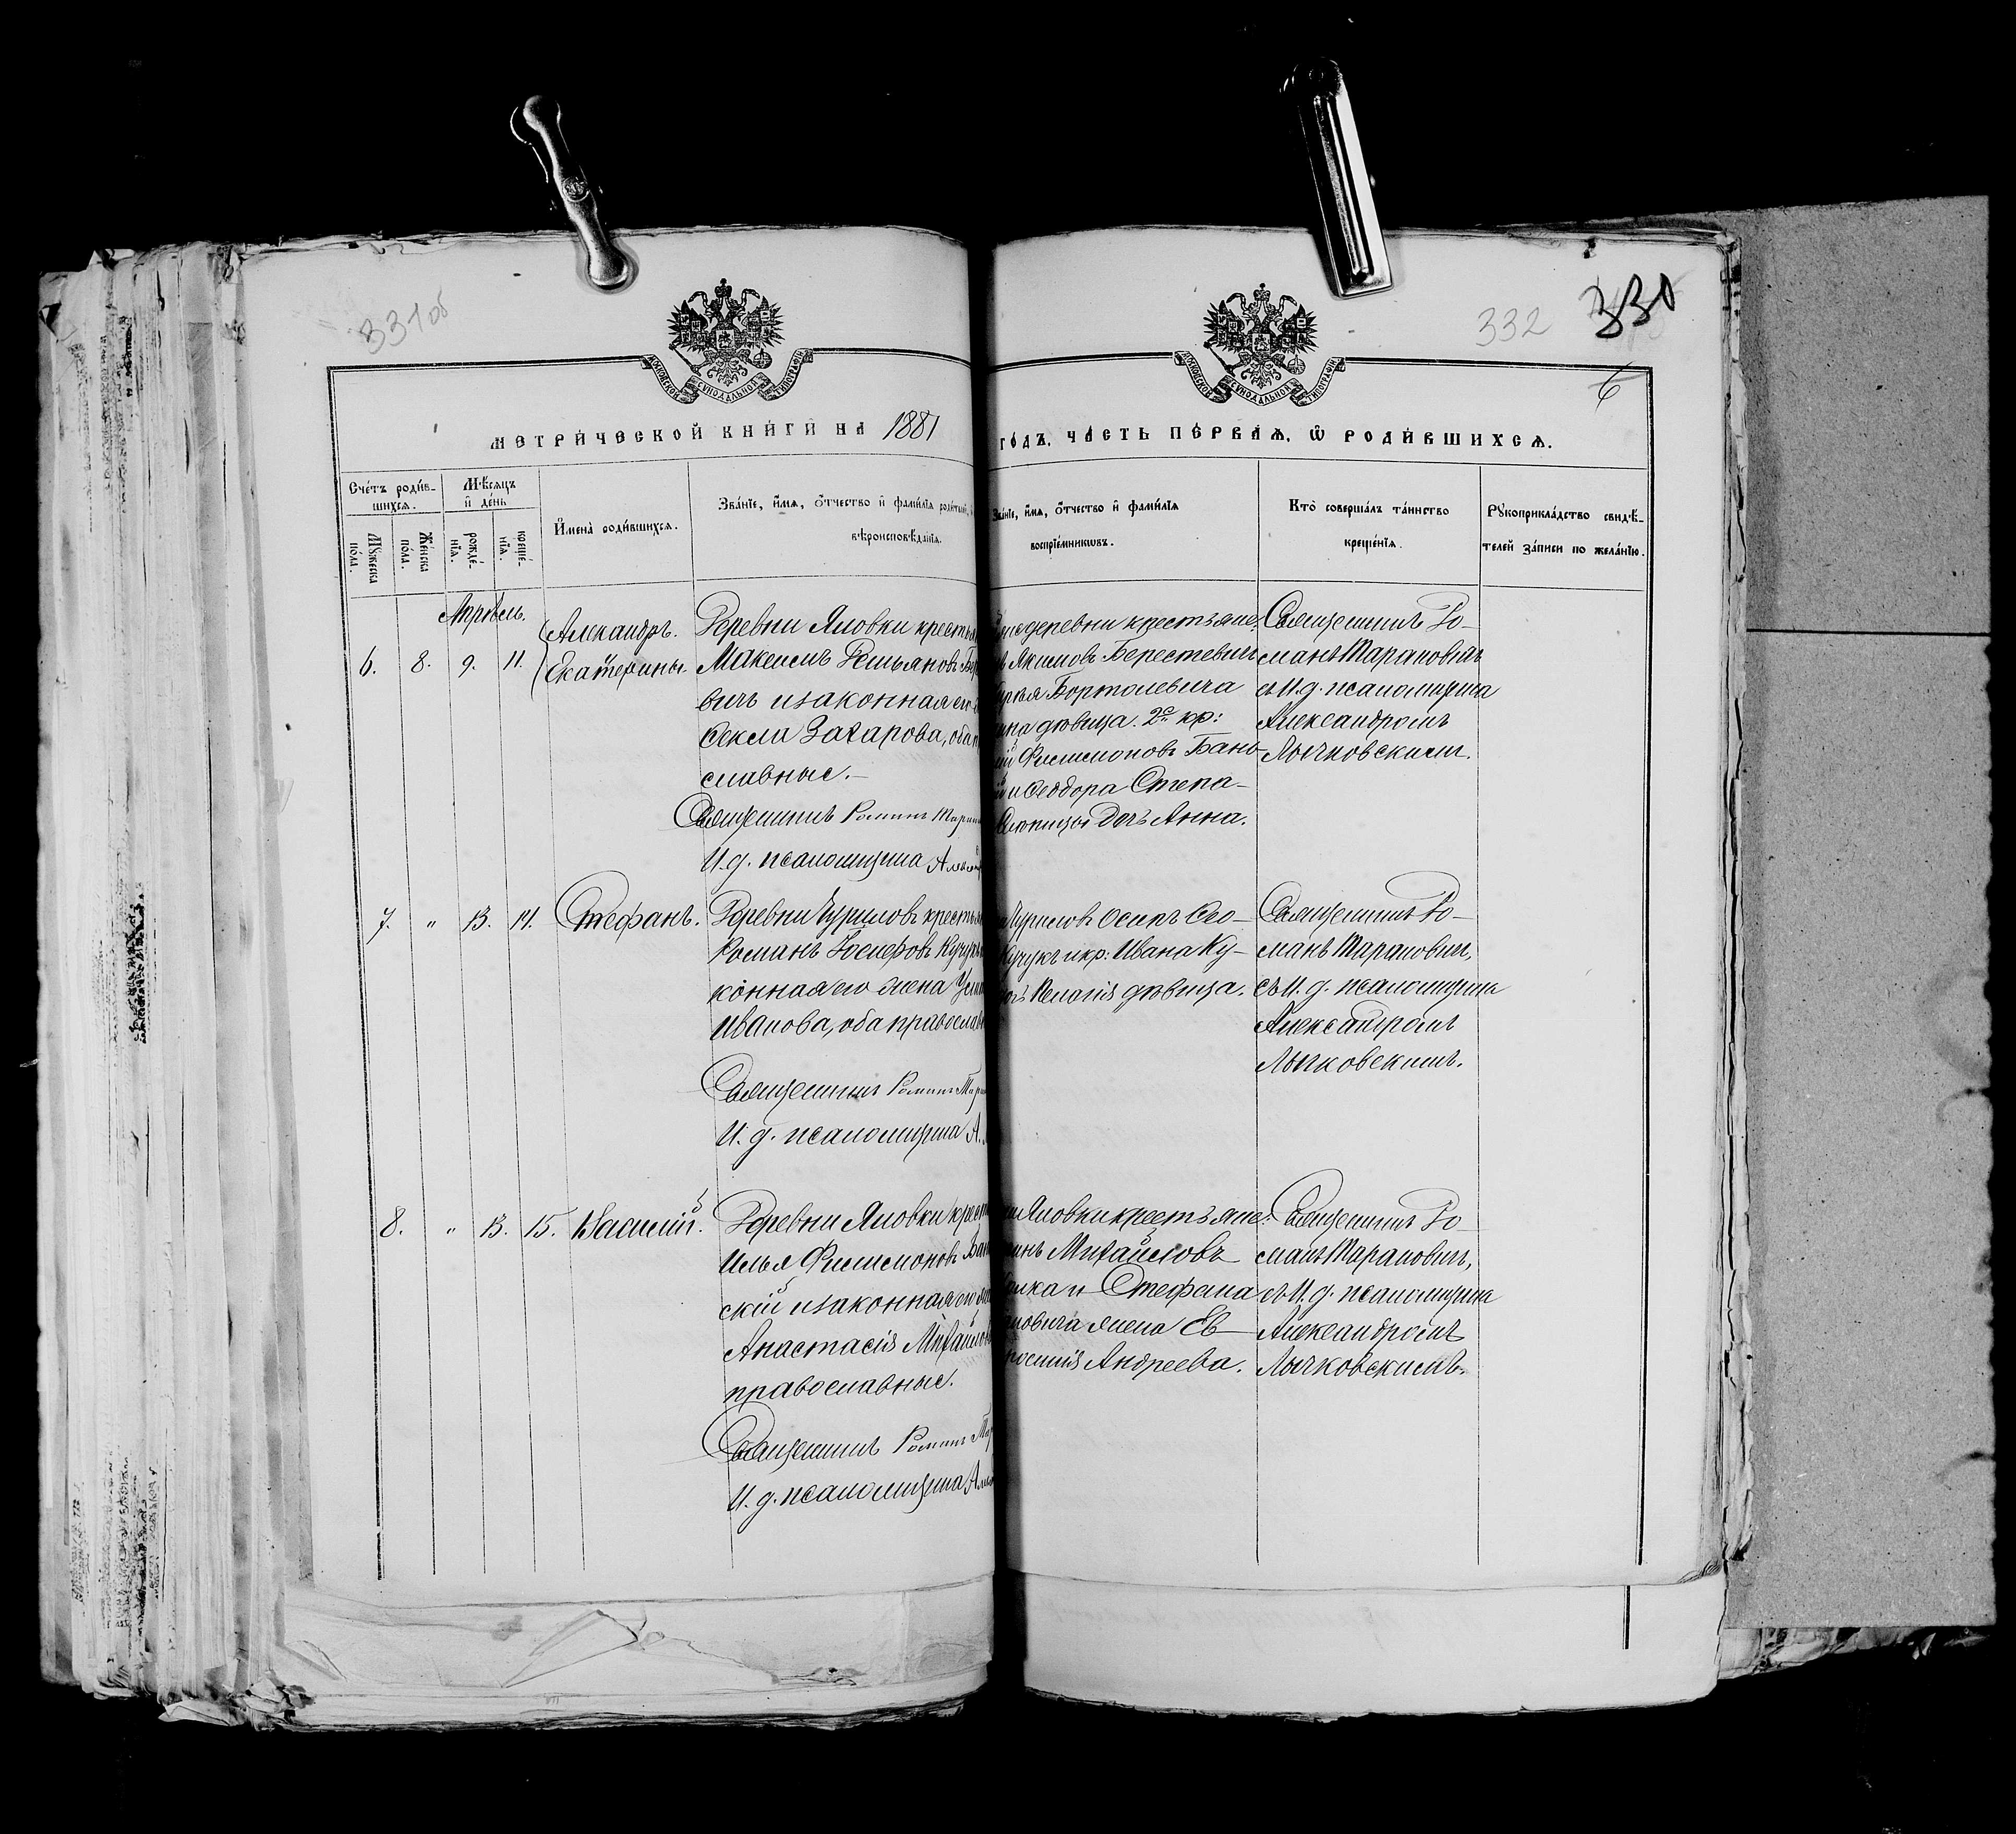 331об
332 330
6
МОСКОВСКОЙ СѴНОДАЛЬНОЙ ТИПОГРАФІИ
МОСКОВСКОЙ СѴНОДАЛЬНОЙ ТИПОГРАФІИ
МЕТРИ́ЧЕСКОЙ КНИ́ГИ НА 1881 ГО́ДЪ, ЧА́СТЬ ПЕ́РВАЯ, Ѡ РОДИ́ВШИХСЯ.
Сче́тъ роди́в-
шихся.
Мꙋ́жеска по́ла.
Же́нска по́ла.
Мѣ́сяцъ
и҆ де́нь
рожде́-
нїя.
креще́-
нїя.
И҆мена̀ роди́вшихся.
Зва́нїе, и҆́мя, ѻ҆́тчество и҆ фамилїя роди́телей,
вѣроисповѣ́данїя.
Зва́нїе, и҆́мя, ѻ҆́тчество и҆ фами́лїя
воспрїе́мникѡвъ.
Кто̀ соверша́лъ та́инство
креще́нїя.
Рꙋкоприкла́дство свидѣ́-
телей за́писи по жела́нїю.
Апрѣль.
6. 8. 9. 11.
Александръ.
Екатерины.
Деревни Яловки
Максимъ Демьяновъ
вичъ и законная его
Ѳекли Захарова,
славные.–
Священникъ Романъ
И. д. псаломщика
деревни крестьяне:
Якимовъ Берестевичъ
Бортолевича
дѣвица. 2е кр:
Филимоновъ Бань-
и Ѳеодора Степа-
дочь Анна.
Священникъ Ро-
манъ Тарановичъ
съ И. д. псаломщика
Александромъ
Лычковскимъ.
7. " 13. 14. Стефанъ.
Деревни Чуриловъ
Романъ Іосифовъ
конная его жена
Иванова, оба
Священникъ Романъ
И. д. псаломщика А.
Чуриловъ Осипъ Ѳео-
Кучукъ и кр: Ивана Ку-
дѣвица.
Священникъ Ро-
манъ Тарановичъ,
съ И. д. псаломщика
Александромъ
Лычковскимъ.
8. " 13. 15. Василій.
Деревни Яловки
Илья Филимоновъ
скій и законная его
Анастасія
православные.
Священникъ Романъ
И. д. псаломщика
Яловки крестьяне:
Михайловъ
и Стефана
жена Ев-
Андреева.
Священникъ Ро-
манъ Тарановичъ,
съ И. д. псаломщика
Александромъ
Лычковскимъ.